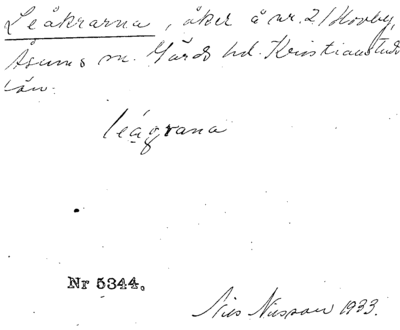 Leåkrarna, åker å nr. 21 Hovby,
Åsums sn. Gärds hd. Kristianstads
län.
leágrana
Nr 5344.
Nils Nilsson 1933.